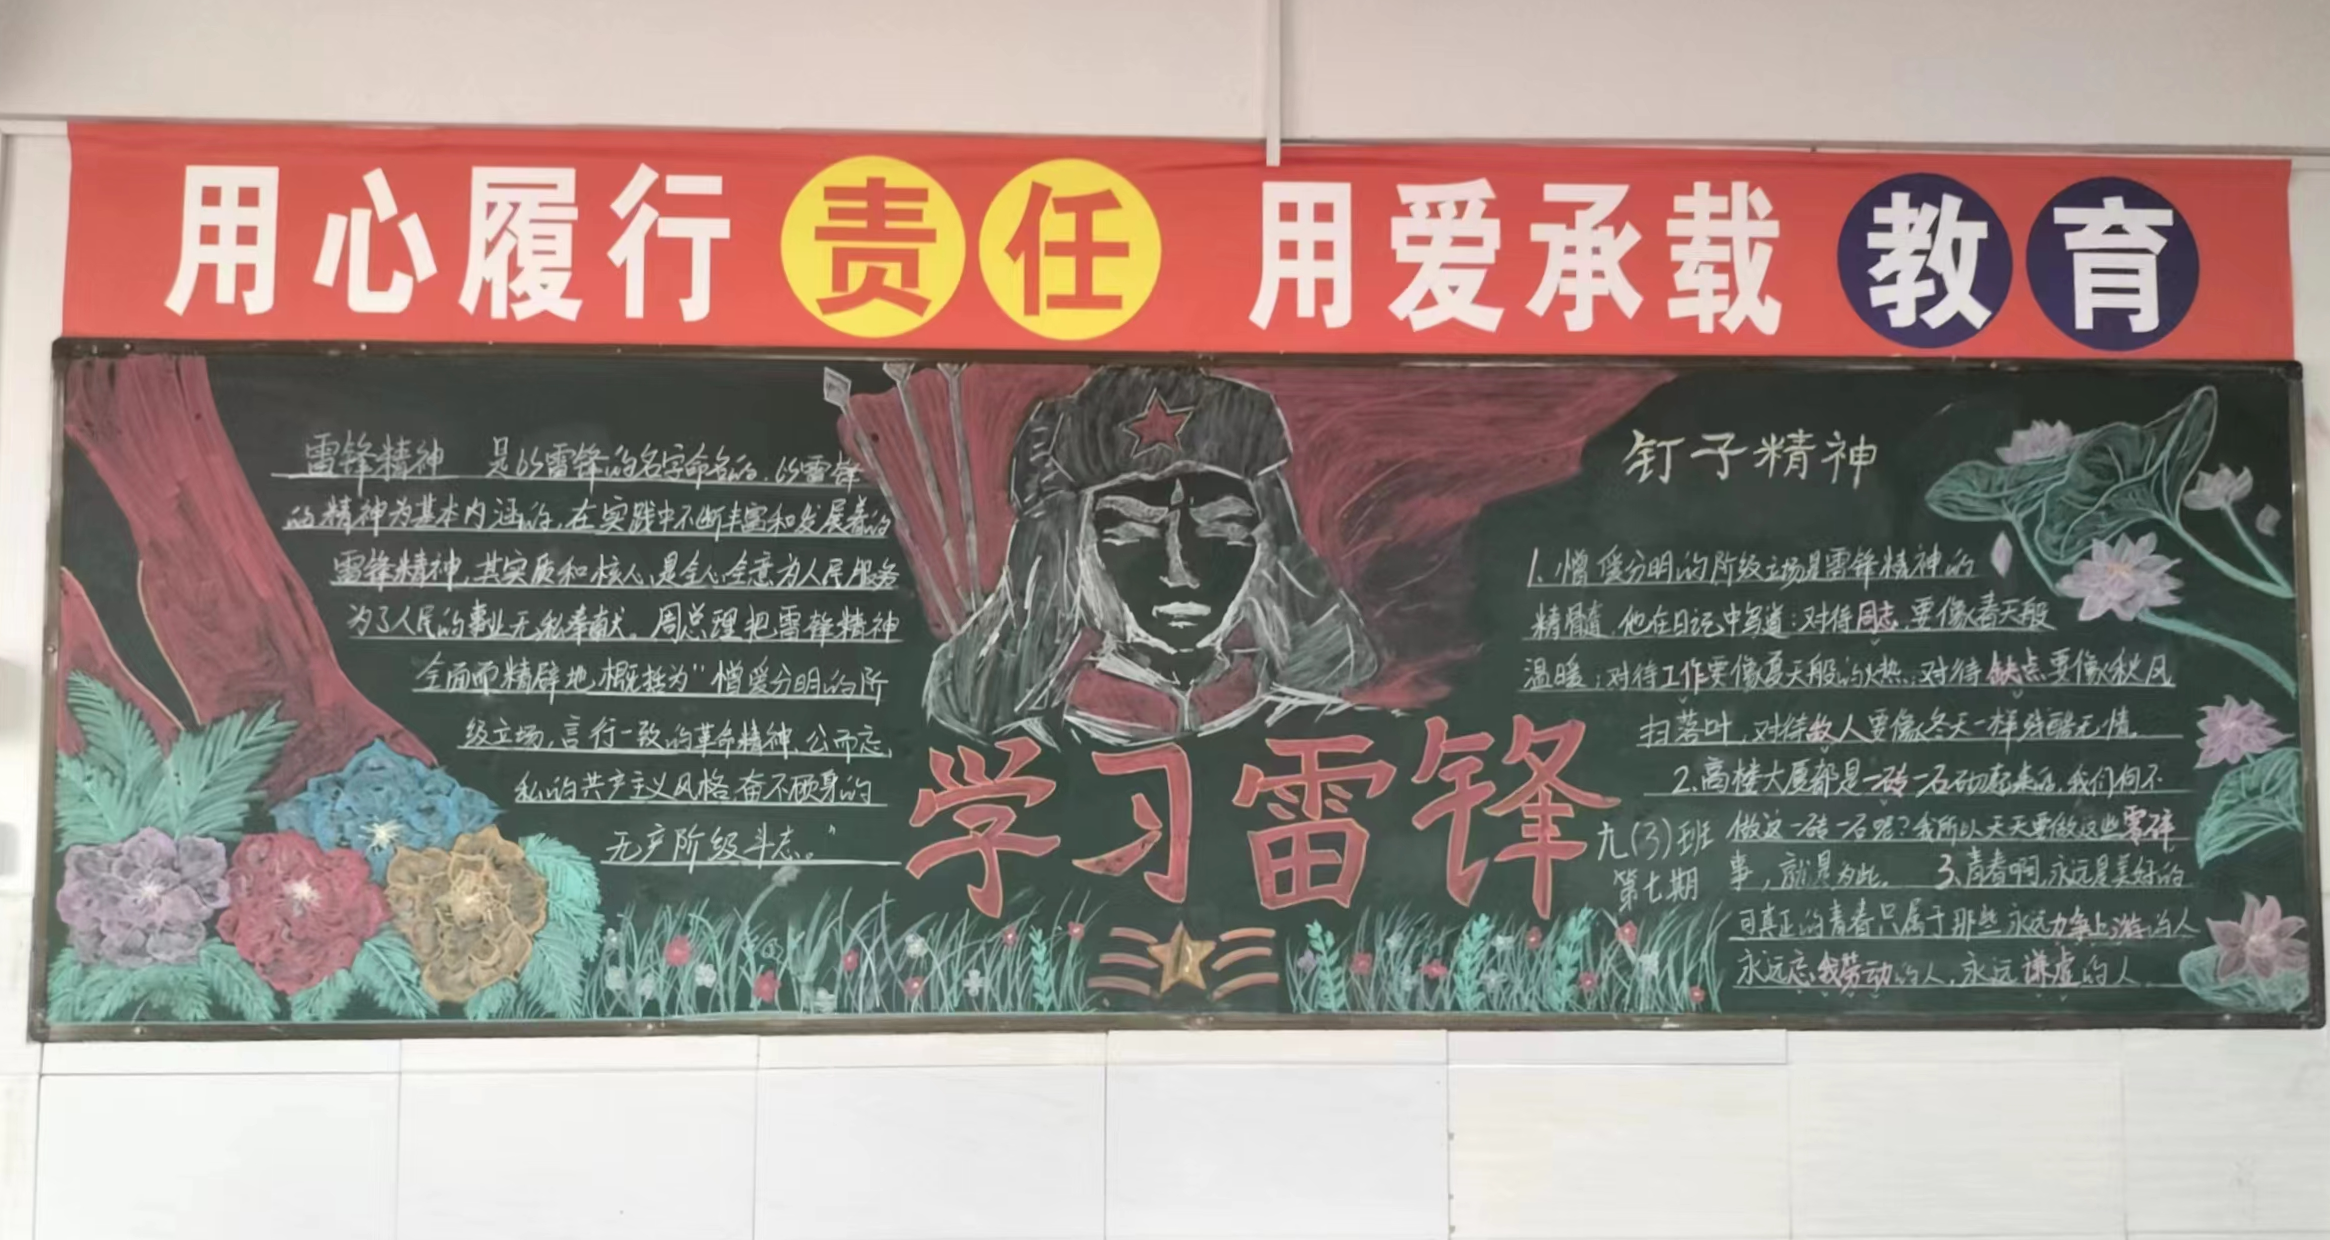 用心履行责任 用爱承载教育
雷锋精神 是以雷锋的名字命名的,以雷锋
的精神为基本内涵的,在实践中不断丰富和发展着的
雷锋精神,其实质和核心是全心全意为人民服务
为了人民的事业无私奉献。周总理把雷锋精神
全面而精辟地概括为“憎爱分明的阶
级立场,言行一致的革命精神,公而忘
私的共产主义风格,奋不顾身的
无产阶级斗志。”
学习雷锋
九(3)班
第七期
钉子精神
1、憎爱分明的阶级立场是雷锋精神的
精髓,他在日记中写道:对待同志,要像春天般
温暖;对待工作要像夏天般的火热;对待缺点要像秋风
扫落叶,对待敌人要像冬天一样残酷无情。
2、高楼大厦都是一砖一石砌起来的,我们何不
做这一砖一石呢?我所以天天要做这些零碎
事,就是为此。 3、青春啊,永远是美好的
可真正的青春只属于那些永远力争上游的人
永远忘我劳动的人,永远谦虚的人